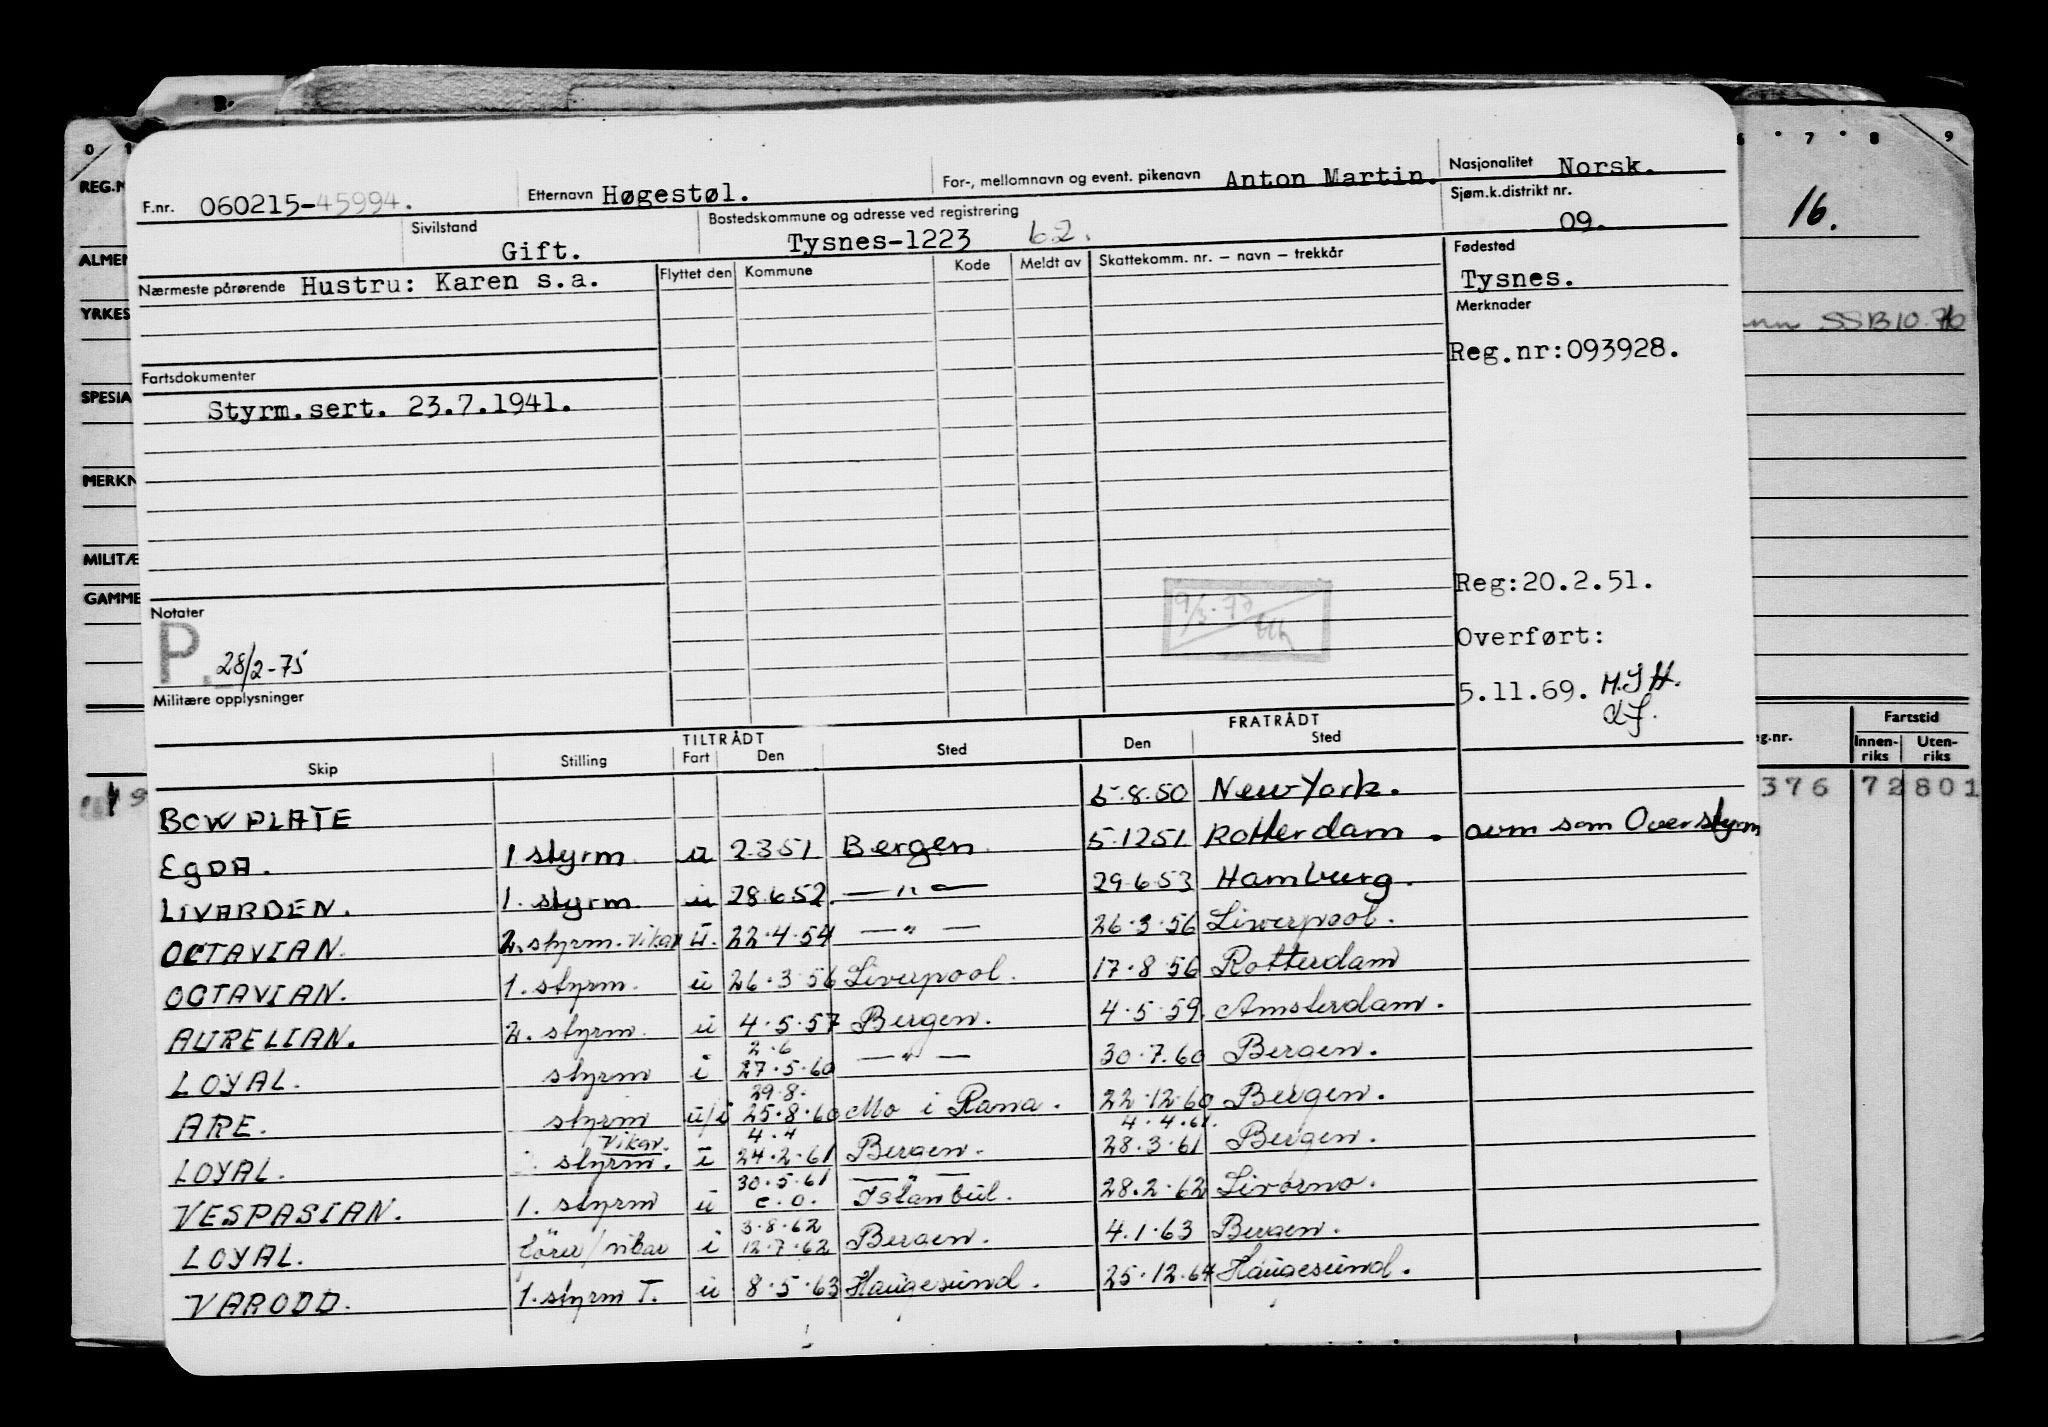 0 1 6 7 8 9
REG.N
16.
F.nr. 060215-45994. Etternavn Høgestøl. For-, mellomnavn og event. pikenavn Anton Martin. Nasjonalitet Norsk.
Sivilstand Gift. Bostedskommune og adresse ved registrering Tysnes-1223 62. Sjøm.k.distrikt nr. 09.
ALMEN
Nærmeste pårørende Hustru: Karen s.a. Flyttet den Kommune Kode Meldt av Skattekomm. nr. – navn – trekkår Fødested
Tysnes.
YRKES
Merknader
SSB 10.76
Reg.nr:093928.
Fartsdokumenter
SPESIA
Styrm.sert. 23.7.1941.
MERKN
MILITÆ
GAMME
Reg:20.2.51.
Notater
9/3-77
Overført:
P. 28/2-75
5.11.69. M.J H.
Militære opplysninger
TILTRÅDT FRATRÅDT
Skip Stilling Fart Den Sted Den Sted
g.nr. Fartstid
Innen-riks Uten-riks
376 72 801
BOW PLATE 5.8.50 New York.
EgDA. 1 styrm. u 2.3.51 Bergen 5.12.51 Rotterdam. avm som Overstyrm
LIVARDEN. 1. styrm u 28.6.52. —"— 29.6.53 Hamburg.
OCTAVIAN. 2. styrm. vikar u. 22.4.54 —"— 26.3.56 Liverpool.
OCTAVIAN. 1. styrm. u 26.3.56 Liverpool. 17.8.56 Rotterdam
AURELIAN. 2. styrm. u 4.5.57 Bergen. 4.5.59. Amsterdam.
2.6
LOYAL. styrm i 27.5.60 —"— 30.7.60 Bergen.
29.8.
ARE. styrm u/i 25.8.60 Mo i Rana. 22.12.60 Bergen.
vikar. 4.4 4.4.61.
LOYAL. styrm. i 24.2.61 Bergen. 28.3.61 Bergen.
30.5.61 —"—
VESPASIAN. 1. styrm u e.o. Istanbul. 28.2.62 Livorno.
3.8.62
LOYAL. fører/vikar i 12.7.62 Bergen. 4.1.63 Bergen.
VARODD. 1. styrm T. u 8.5.63 Haugesund. 25.12.64 Haugesund.